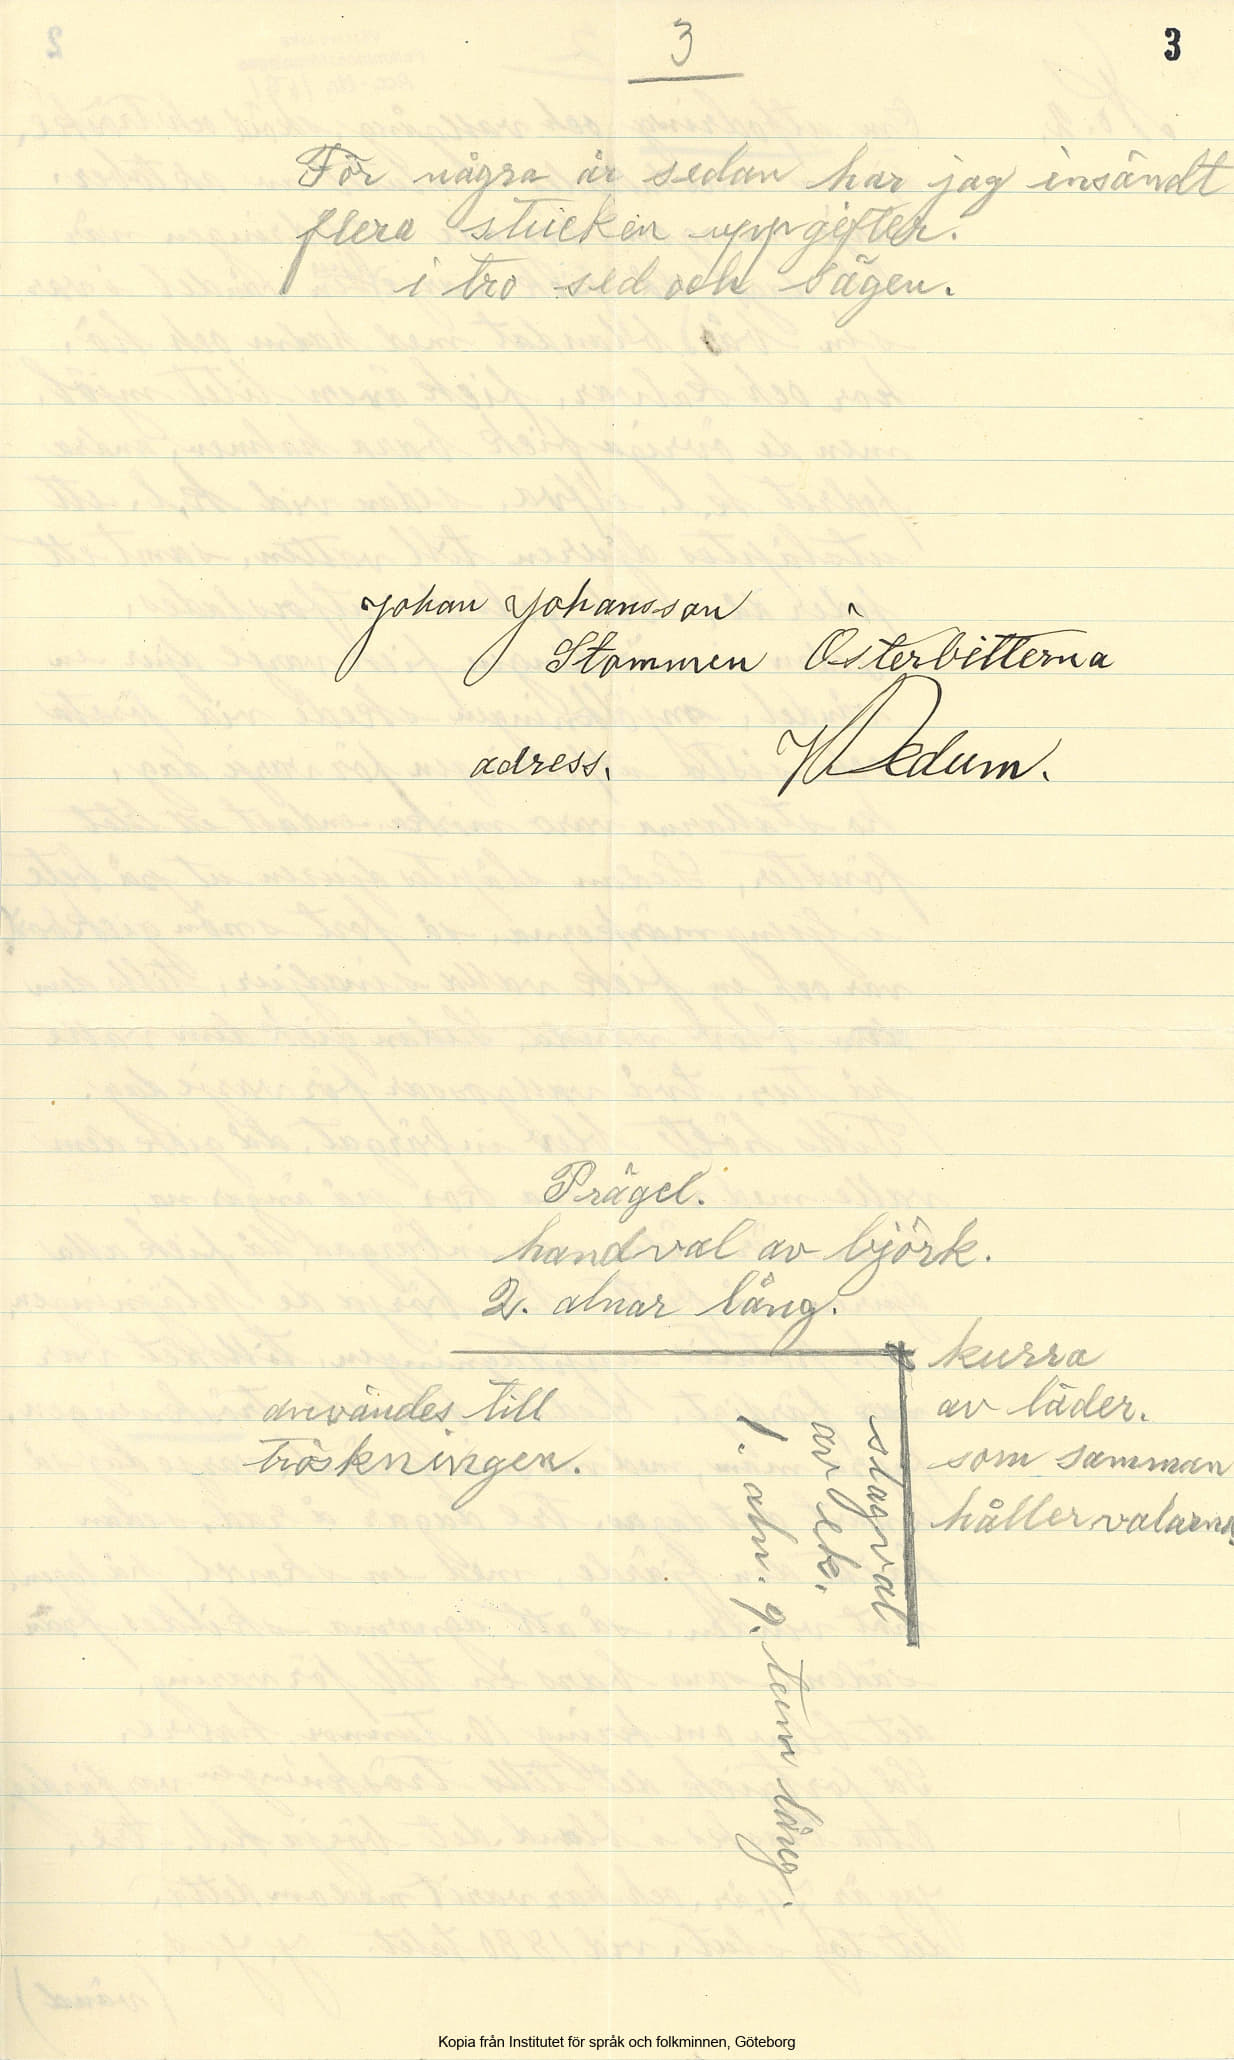 3
3
För några år sedan har jag insändt
flera stücken uppgifter.
i tro sed och sägen.
Johan Johansson
Stommen Österbitterna
adress. Vedum.
Prägel.
handval av björk.
2. alnar lång.
kurra
av läder.
som samman
håller valarna
användes till
tröskningen.
slagval
av ek.
1. aln. 9. tum lång.
Kopia från Institutet för språk och folkminnen, Göteborg